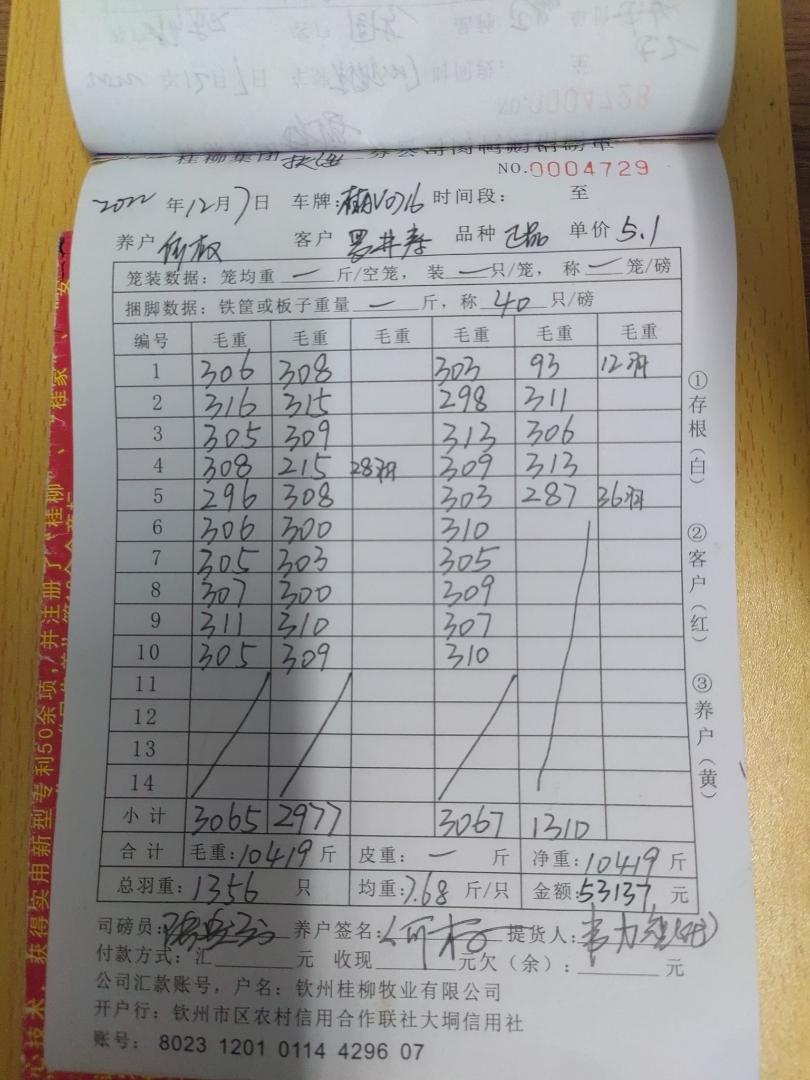 NO.0004729
2022 年12月7日 车牌: 时间段: 至
养户 何权 客户 品种 正品 单价 5.1
笼装数据：笼均重 一 斤/空笼，装 一 只/笼，称 一 笼/磅
捆脚数据：铁筐或板子重量 一 斤，称 40 只/磅
编号 毛重 毛重 毛重 毛重 毛重 毛重
1 306 308 303 93 12羽
2 316 315 298 311
3 305 309 313 306
4 308 215 28羽 309 313
5 296 308 303 287 36羽
6 306 300 310
7 305 303 305
8 307 300 309
9 311 310 307
10 305 309 310
11
12
13
14
小计 3065 2977 3067 1310
合计 毛重:10419 斤 皮重: 一 斤 净重:10419 斤
总羽重:1356 只 均重:7.68 斤/只 金额:53137 元
司磅员: 养户签名: 提货人:
付款方式：汇 元 收现 元欠（余）: 元
公司汇款账号，户名：钦州桂柳牧业有限公司
开户行：钦州市区农村信用合作联社大垌信用社
账号： 8023 1201 0114 4296 07
①存根（白）
②客户（红）
③养户（黄）
心技术，获得实用新型专利50余项，并注册了“桂柳”、“桂家”、